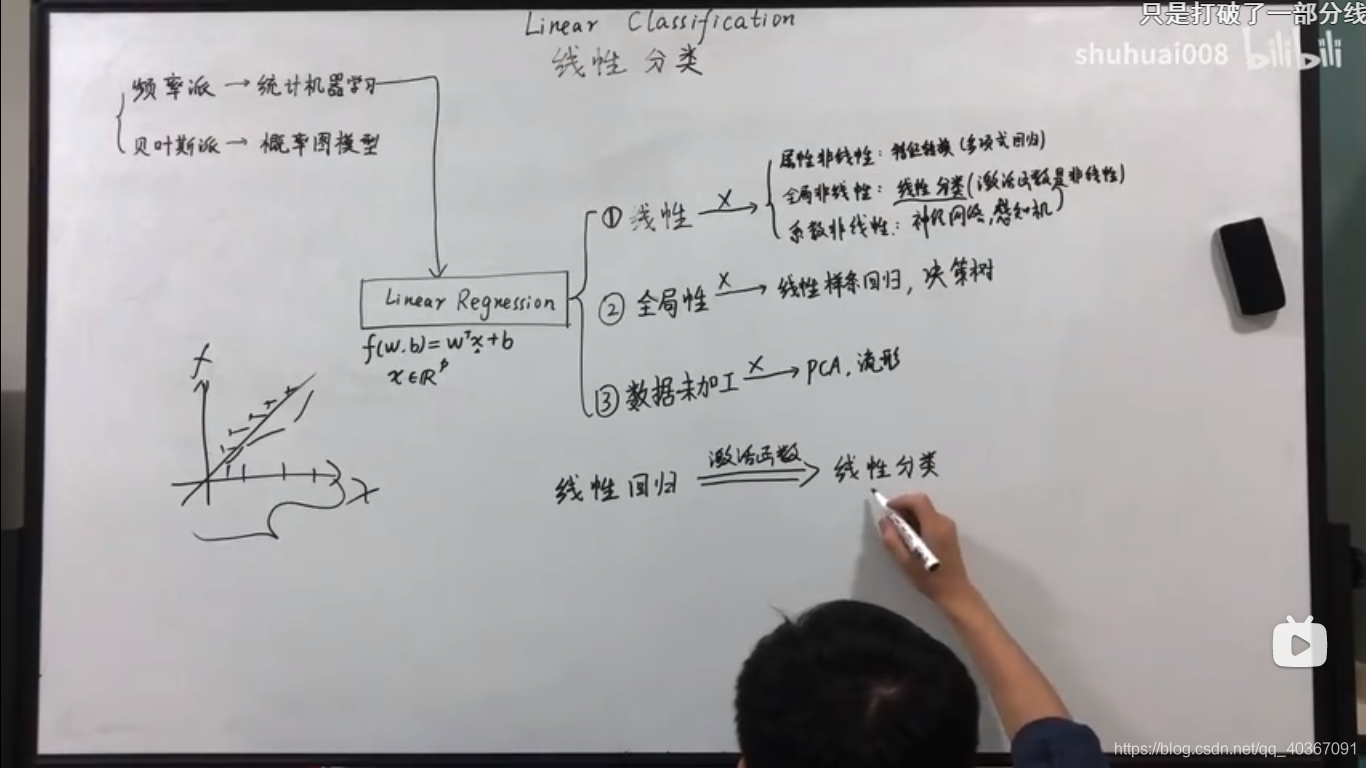 只是打破了一部分线
shuhuai008 bilibili
Linear Classification
线性分类
频率派 → 统计机器学习
贝叶斯派 → 概率图模型
① 线性 —X→
属性非线性：特征转换（多项式回归）
全局非线性：线性分类（激活函数是非线性）
系数非线性：神经网络，感知机
② 全局性 —X→ 线性样条回归，决策树
③ 数据未加工 —X→ PCA，流形
Linear Regression
f(w.b)=wᵀx+b
x∈ℝᵖ
f
x
线性回归 激活函数 ⟹ 线性分类
https://blog.csdn.net/qq_40367091